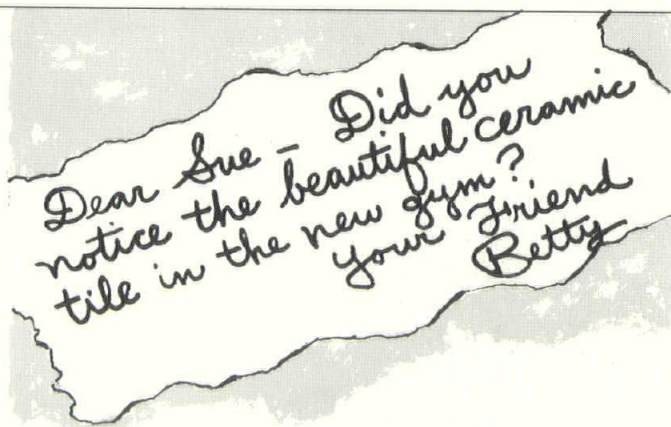 Dear Sue - Did you
notice the beautiful ceramic
tile in the new gym?
your Friend
Betty